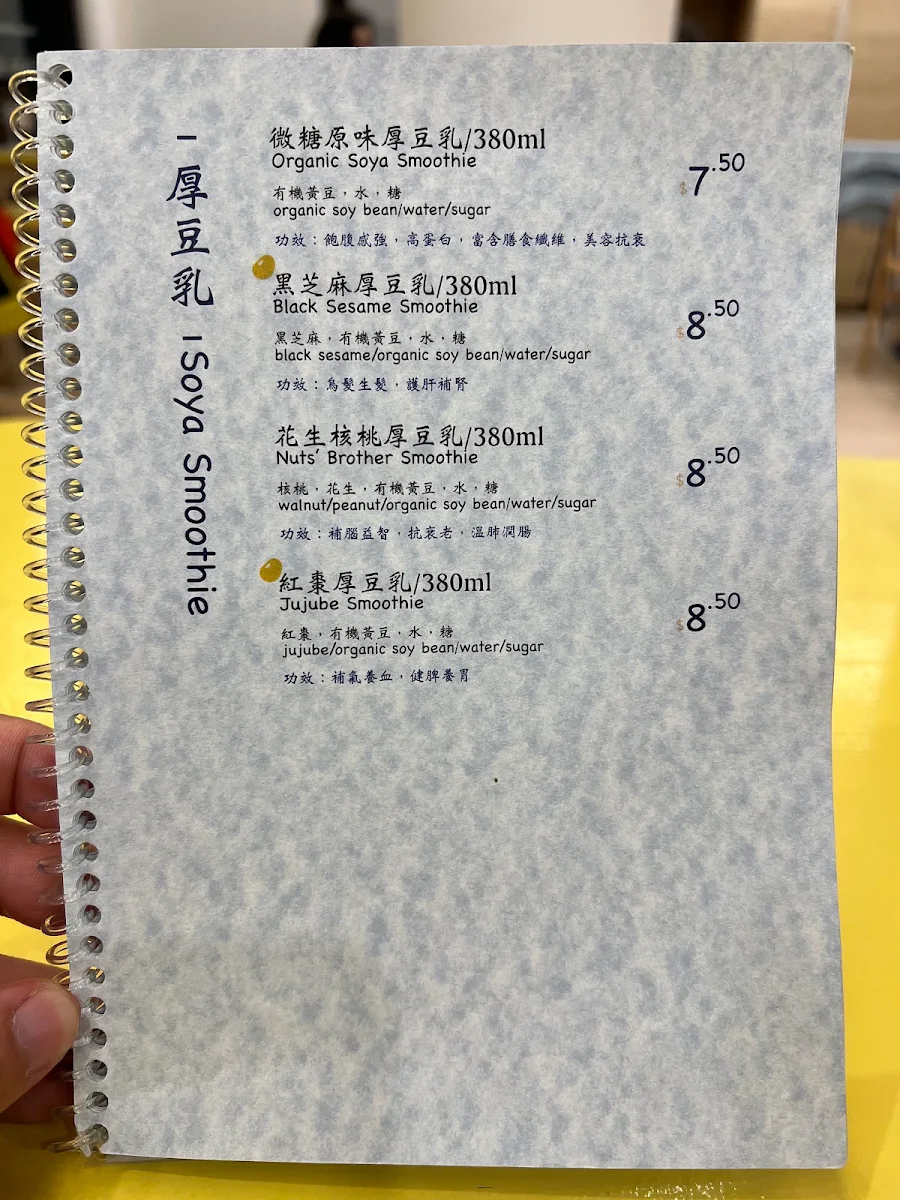 一厚豆乳 一 Soya Smoothie
微糖原味厚豆乳/380ml
Organic Soya Smoothie
$7.50
有機黃豆，水，糖
organic soy bean/water/sugar
功效：飽腹感強，高蛋白，富含膳食纖維，美容抗衰
黑芝麻厚豆乳/380ml
Black Sesame Smoothie
$8.50
黑芝麻，有機黃豆，水，糖
black sesame/organic soy bean/water/sugar
功效：烏髮生髮，護肝補腎
花生核桃厚豆乳/380ml
Nuts' Brother Smoothie
$8.50
核桃，花生，有機黃豆，水，糖
walnut/peanut/organic soy bean/water/sugar
功效：補腦益智，抗衰老，溫肺潤腸
紅棗厚豆乳/380ml
Jujube Smoothie
$8.50
紅棗，有機黃豆，水，糖
jujube/organic soy bean/water/sugar
功效：補氣養血，健脾養胃